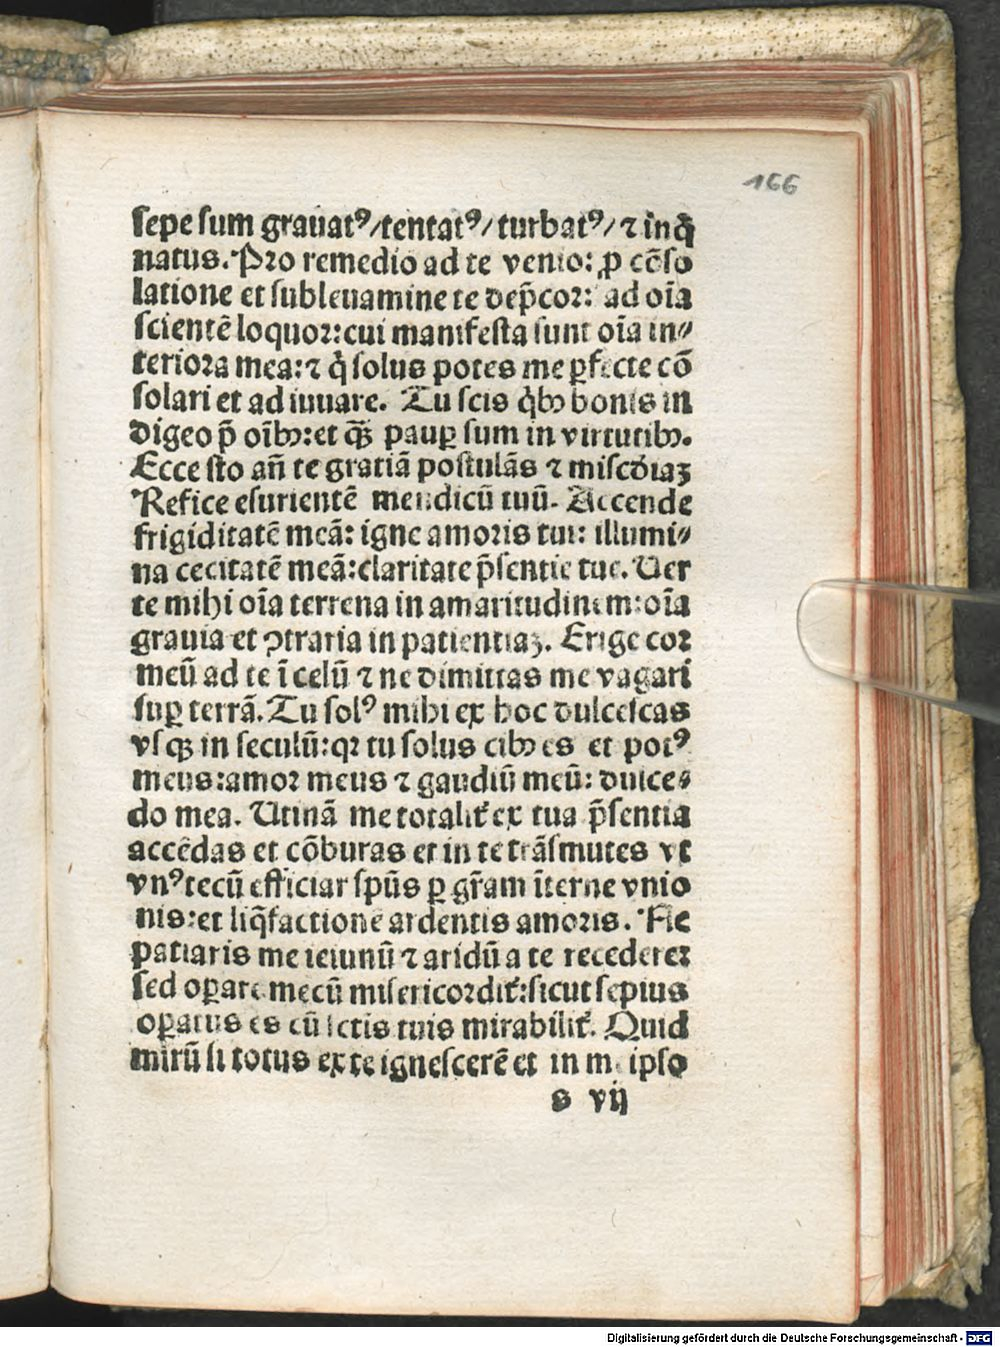 166
sepe sum grauatꝰ/tentatꝰ/turbatꝰ/⁊ inq̃
natus. Pꝛo remedio ad te venio: ꝓ cõso
latione et subleuamine te dep̃coꝛ: ad oĩa
scientẽ loquoꝛ: cui manifesta sunt oĩa in⸗
terioꝛa mea: ⁊ q̇ solus potes me ꝑfecte cõ
solari et ad iuuare. Tu scis q̇bꝰ bonis in
digeo p̃ oĩbꝰ: et q̃ꝫ pauꝑ sum in virtutibꝰ.
Ecce sto añ te gratiã postulãs ⁊ miscd̃iaꝫ
Refice esurientẽ mendicũ tuũ. Accende
frigiditatẽ meã: igne amoꝛis tui: illumi⸗
na cecitatẽ meã: claritate p̃sentie tue. Uer
te mihi oĩa terrena in amaritudinem: oĩa
grauia et ꝯtraria in patientiaꝫ. Erige coꝛ
meũ ad te ĩ celũ ⁊ ne dimittas me vagari
suꝑ terrã. Tu solꝰ mihi ex hoc dulcescas
vsqꝫ in seculũ: qꝛ tu solus cibꝰ es et potꝰ
meus: amoꝛ meus ⁊ gaudiũ meũ: dulce⸗
do mea. Utinã me totalit̃ ex tua p̃sentia
accẽdas et cõburas et in te trãsmutes vt
vnꝰ tecũ efficiar sp̃us ꝑ gr̃am ĩterne vnio
nis: et liq̃factione ardentis amoꝛis. Ne
patiaris me ieiunũ ⁊ aridũ a te recedere:
sed oꝑare mecũ misericoꝛdit̃: sicut sepius
oꝑatus es cũ sctis tuis mirabilit̃. Quid
mirũ si totus ex te ignescerẽ et in me ipso
s vij
Digitalisierung gefördert durch die Deutsche Forschungsgemeinschaft - DFG